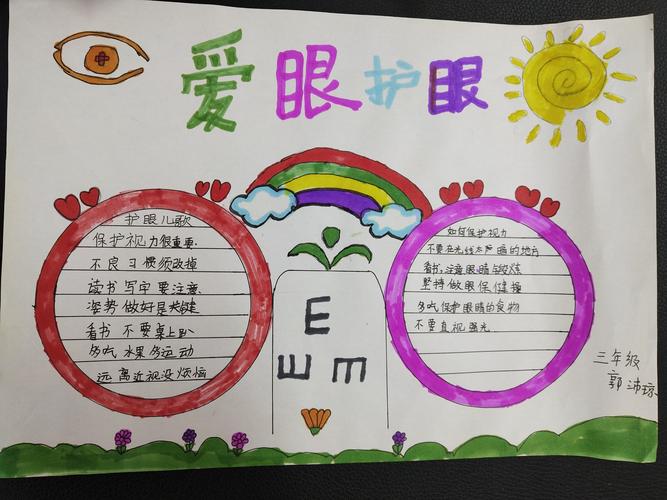 爱眼护眼
护眼儿歌
保护视力很重要.
不良习惯须改掉
读书写字要注意
姿势做好是关键
看书不要桌上趴
多吃水果多运动
远离近视没烦恼
E
E E
如何保护视力
不要在光线太声暗的地方
看书,注意眼睛与
坚持做眼保健操
多吃保护眼睛的食物
不要直视强光
三年级
郭沛琼